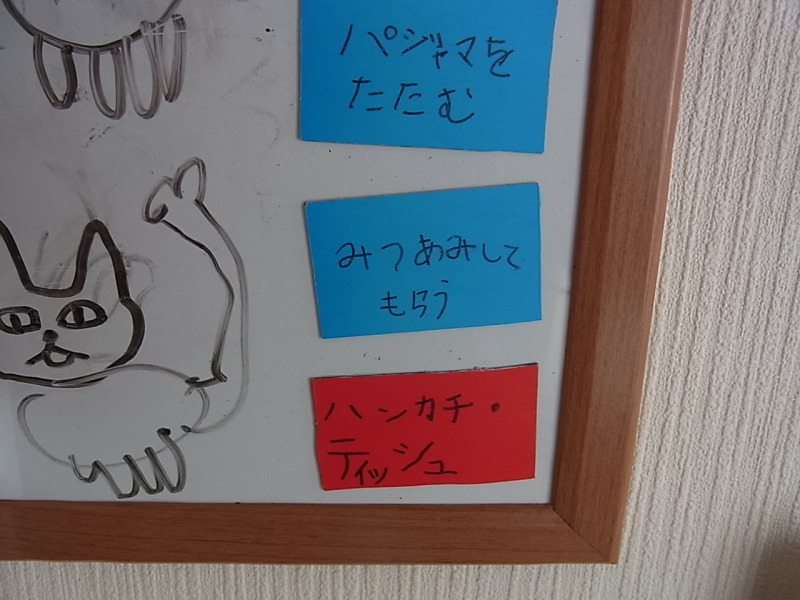 パジャマを
たたむ
みつあみして
もらう
ハンカチ・
ティッシュ